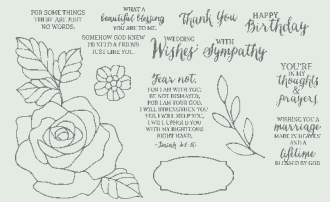 FOR SOME THINGS
THERE ARE JUST
NO WORDS.
WHAT A
beautiful blessing
YOU ARE TO ME.
SOMEHOW GOD KNEW
I'D NEED A FRIEND
JUST LIKE YOU.
Thank You
HAPPY
Birthday
WEDDING
Wishes
WITH
Sympathy
YOU'RE
IN MY
thoughts
&
prayers.
Fear not,
FOR I AM WITH YOU;
BE NOT DISMAYED,
FOR I AM YOUR GOD.
I WILL STRENGTHEN YOU
YES, I WILL HELP YOU,
I WILL UPHOLD YOU
WITH MY RIGHTEOUS
RIGHT HAND.
-Isaiah 41:10
WISHING YOU A
marriage
MADE IN HEAVEN
AND A
lifetime
BLESSED BY GOD